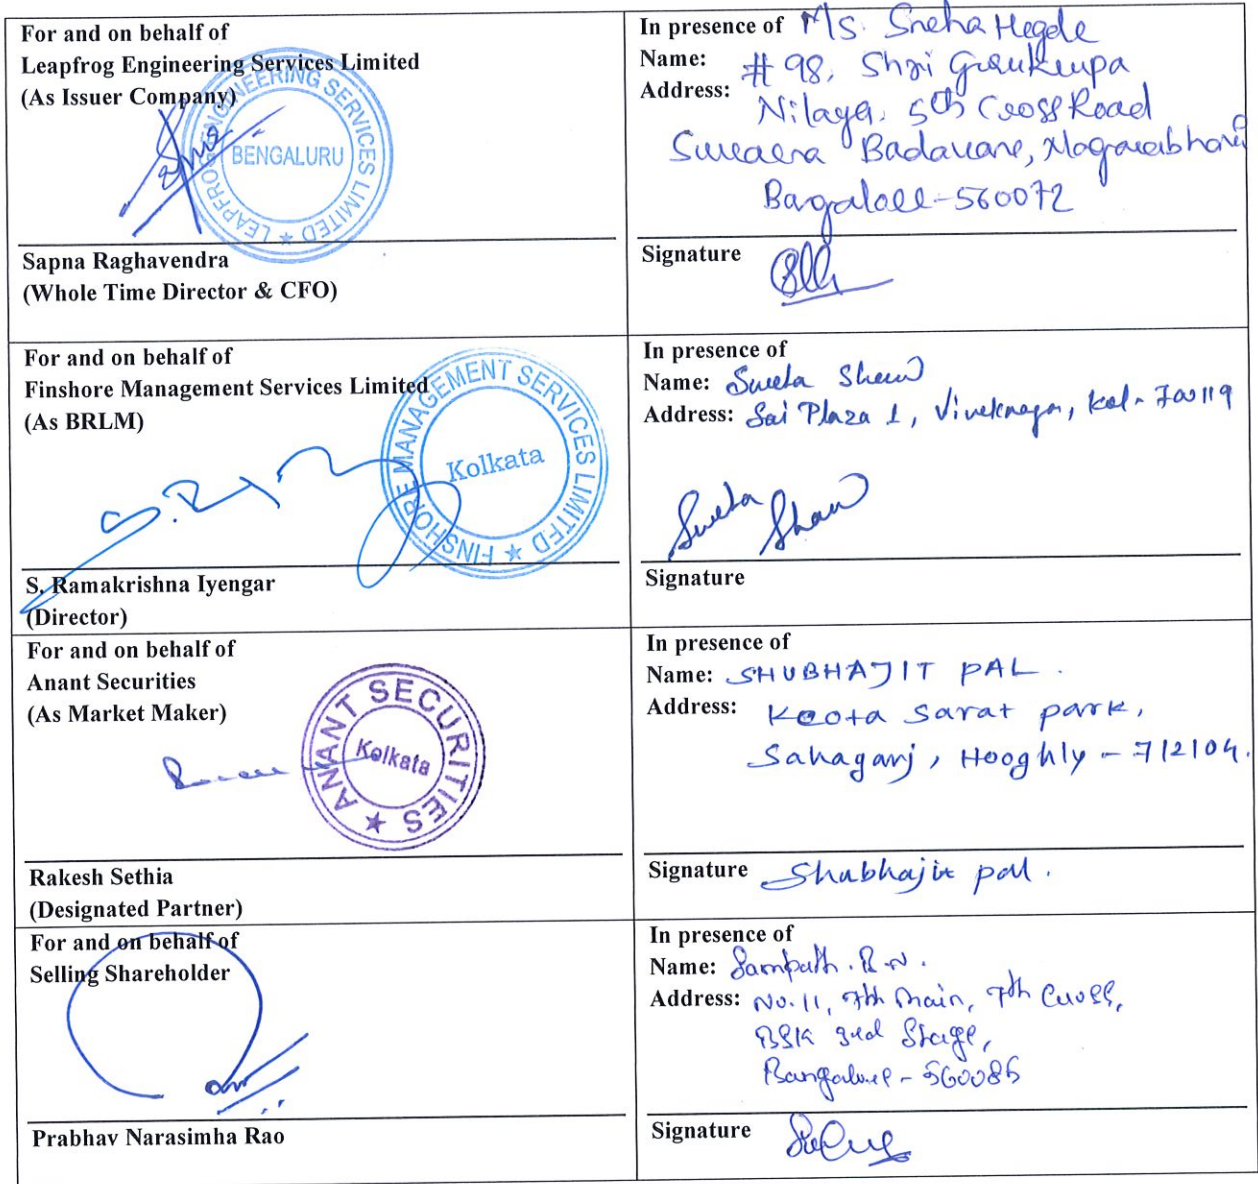 For and on behalf of
Leapfrog Engineering Services Limited
(As Issuer Company)
LEAPFROG ENGINEERING SERVICES LIMITED ★
BENGALURU
Sapna Raghavendra
(Whole Time Director & CFO)
In presence of Ms. Sneha Hegde
Name:
Address: #98, Shri Gurukrupa
Nilaya, 5th Cross Road
Badavane,
560072
Signature
For and on behalf of
Finshore Management Services Limited
(As BRLM)
FINSHORE MANAGEMENT SERVICES LIMITED ★
Kolkata
S. Ramakrishna Iyengar
(Director)
In presence of
Name: Sweta Shaw
Address: Sai Plaza 1, Viveknagar, Kol- 700119
Sweta
Shaw
Signature
For and on behalf of
Anant Securities
(As Market Maker)
ANANT SECURITIES ★
Kolkata
Rakesh Sethia
(Designated Partner)
In presence of
Name: SHUBHAJIT PAL.
Address: Keota Sarat park,
Sahaganj, Hooghly - 712104.
Signature Shubhajit pal.
For and on behalf of
Selling Shareholder
Prabhav Narasimha Rao
In presence of
Name: Sampath. R.N.
Address: No. 11, 7th Main, 7th Cross,
BSK 3rd Stage,
Bangalore - 560085
Signature